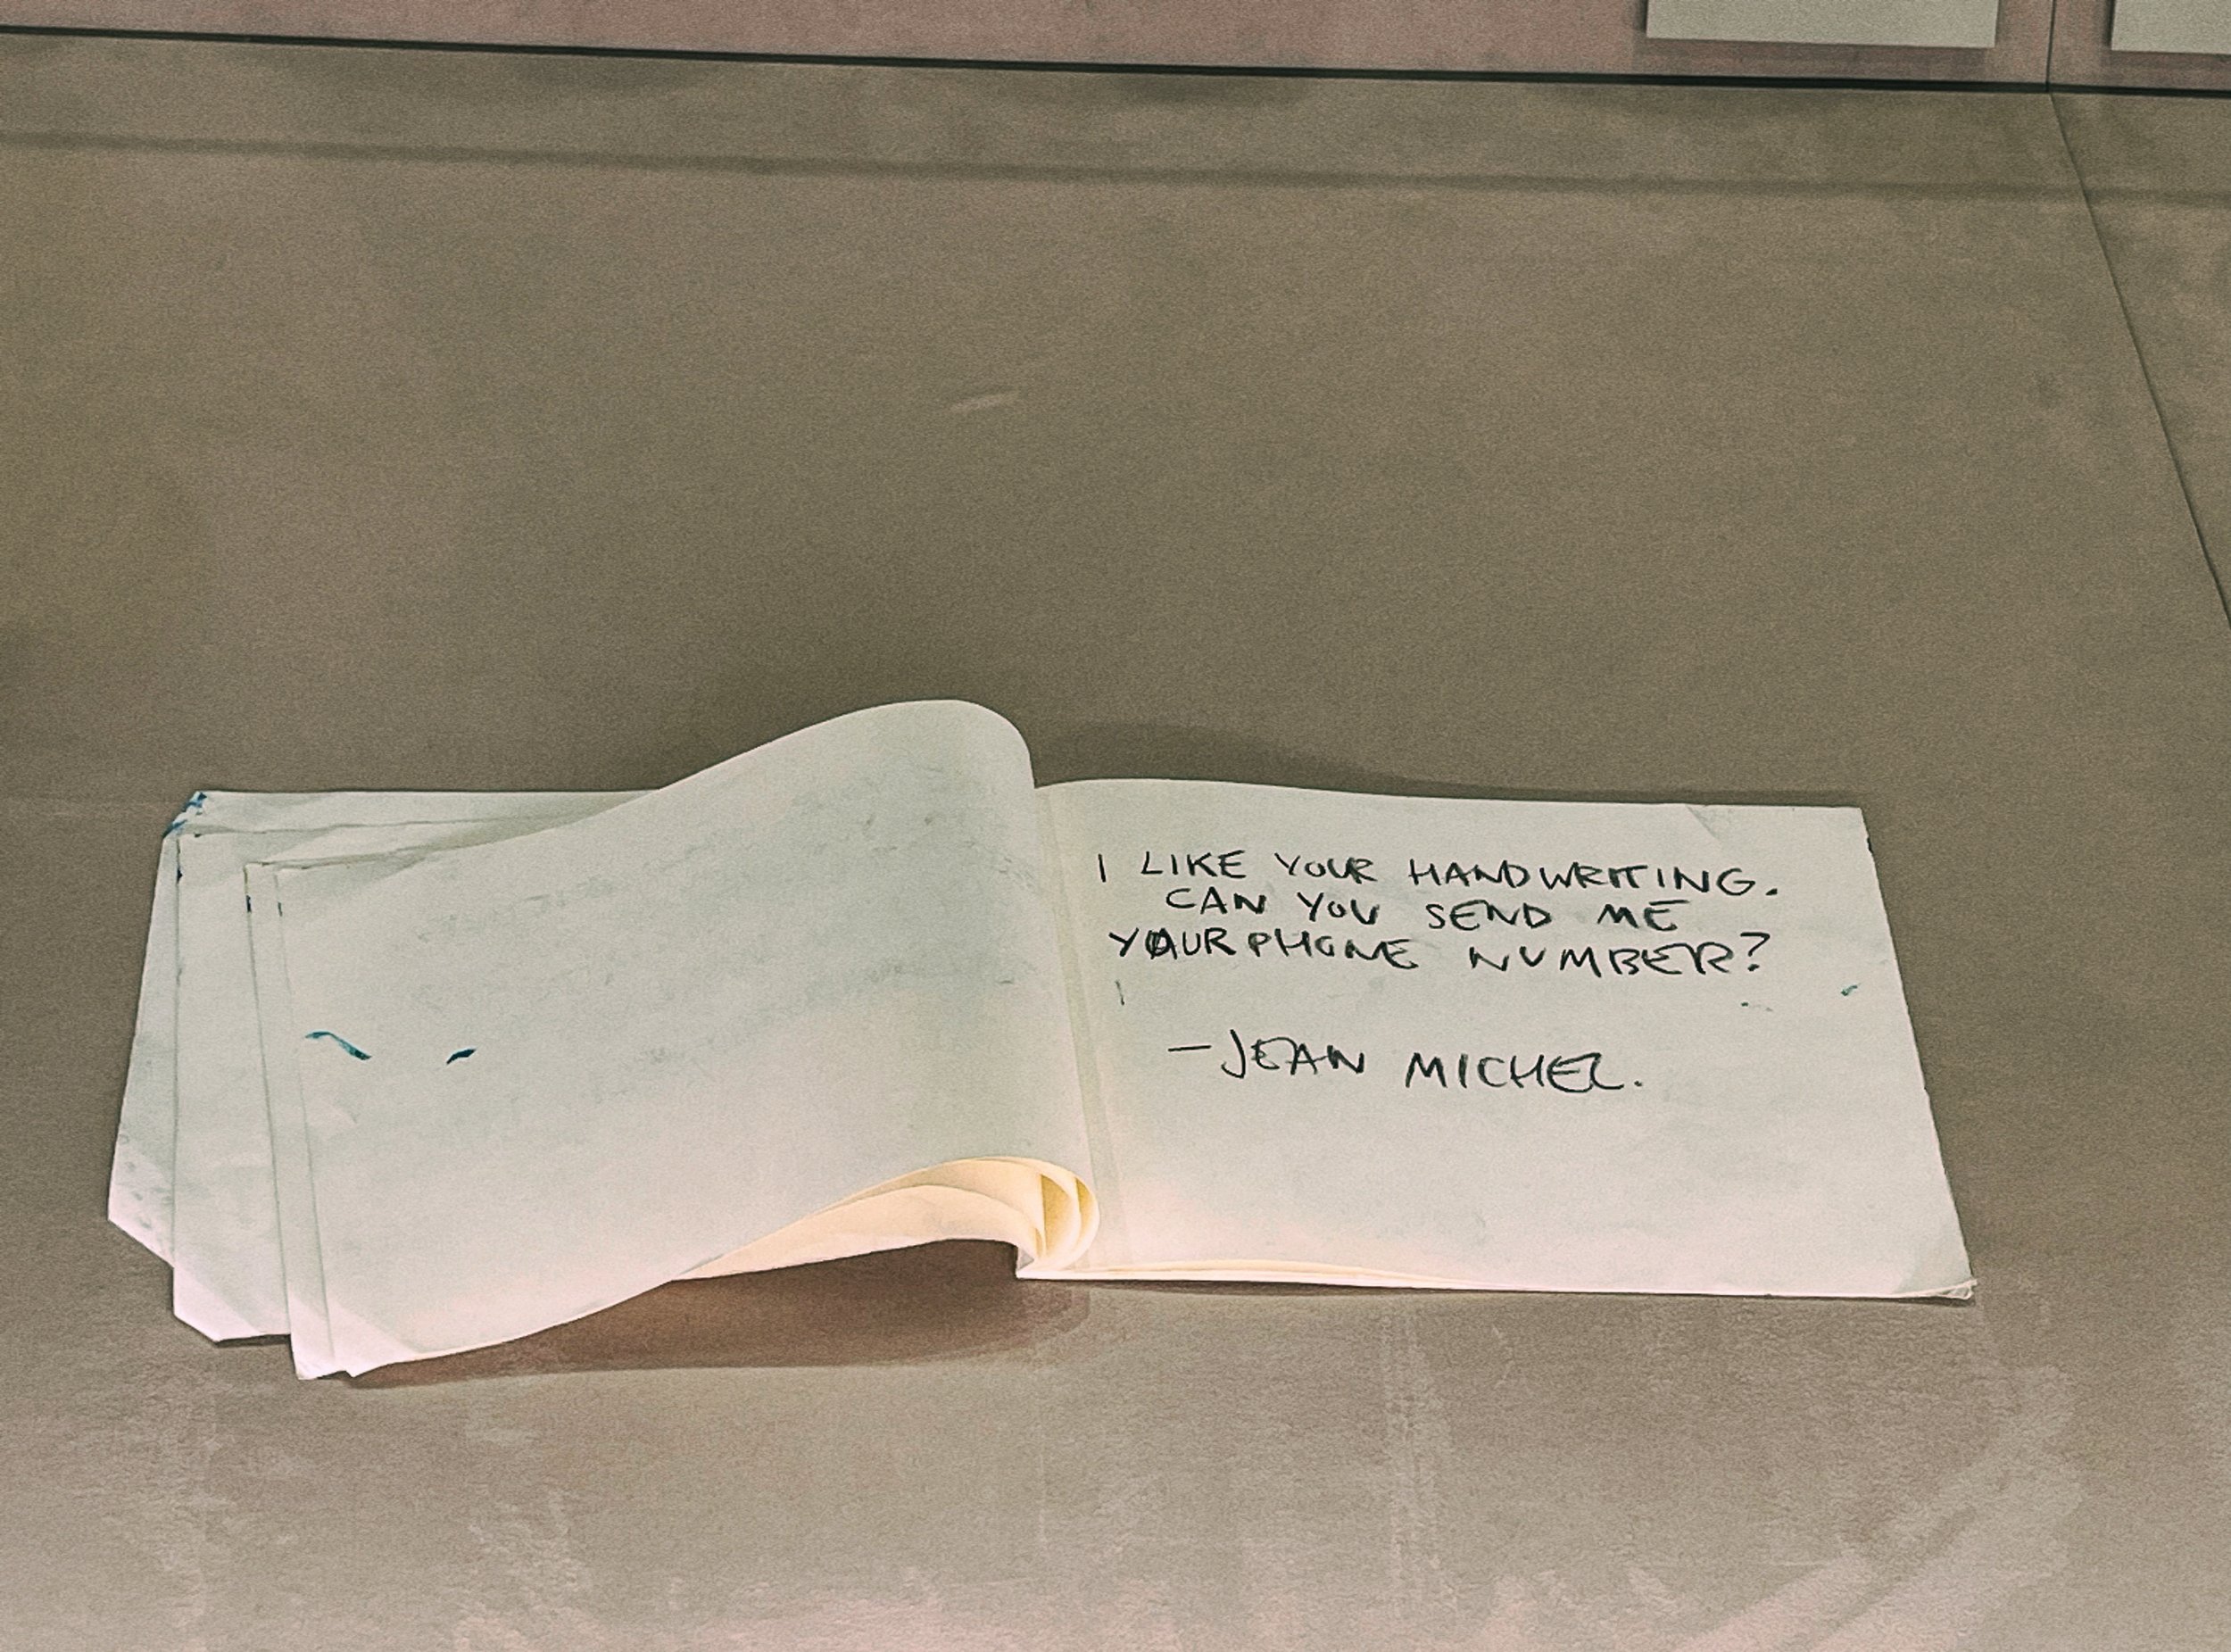 I LIKE YOUR HANDWRITING.
CAN YOU SEND ME
YOUR PHONE NUMBER?
—JEAN MICHEL.